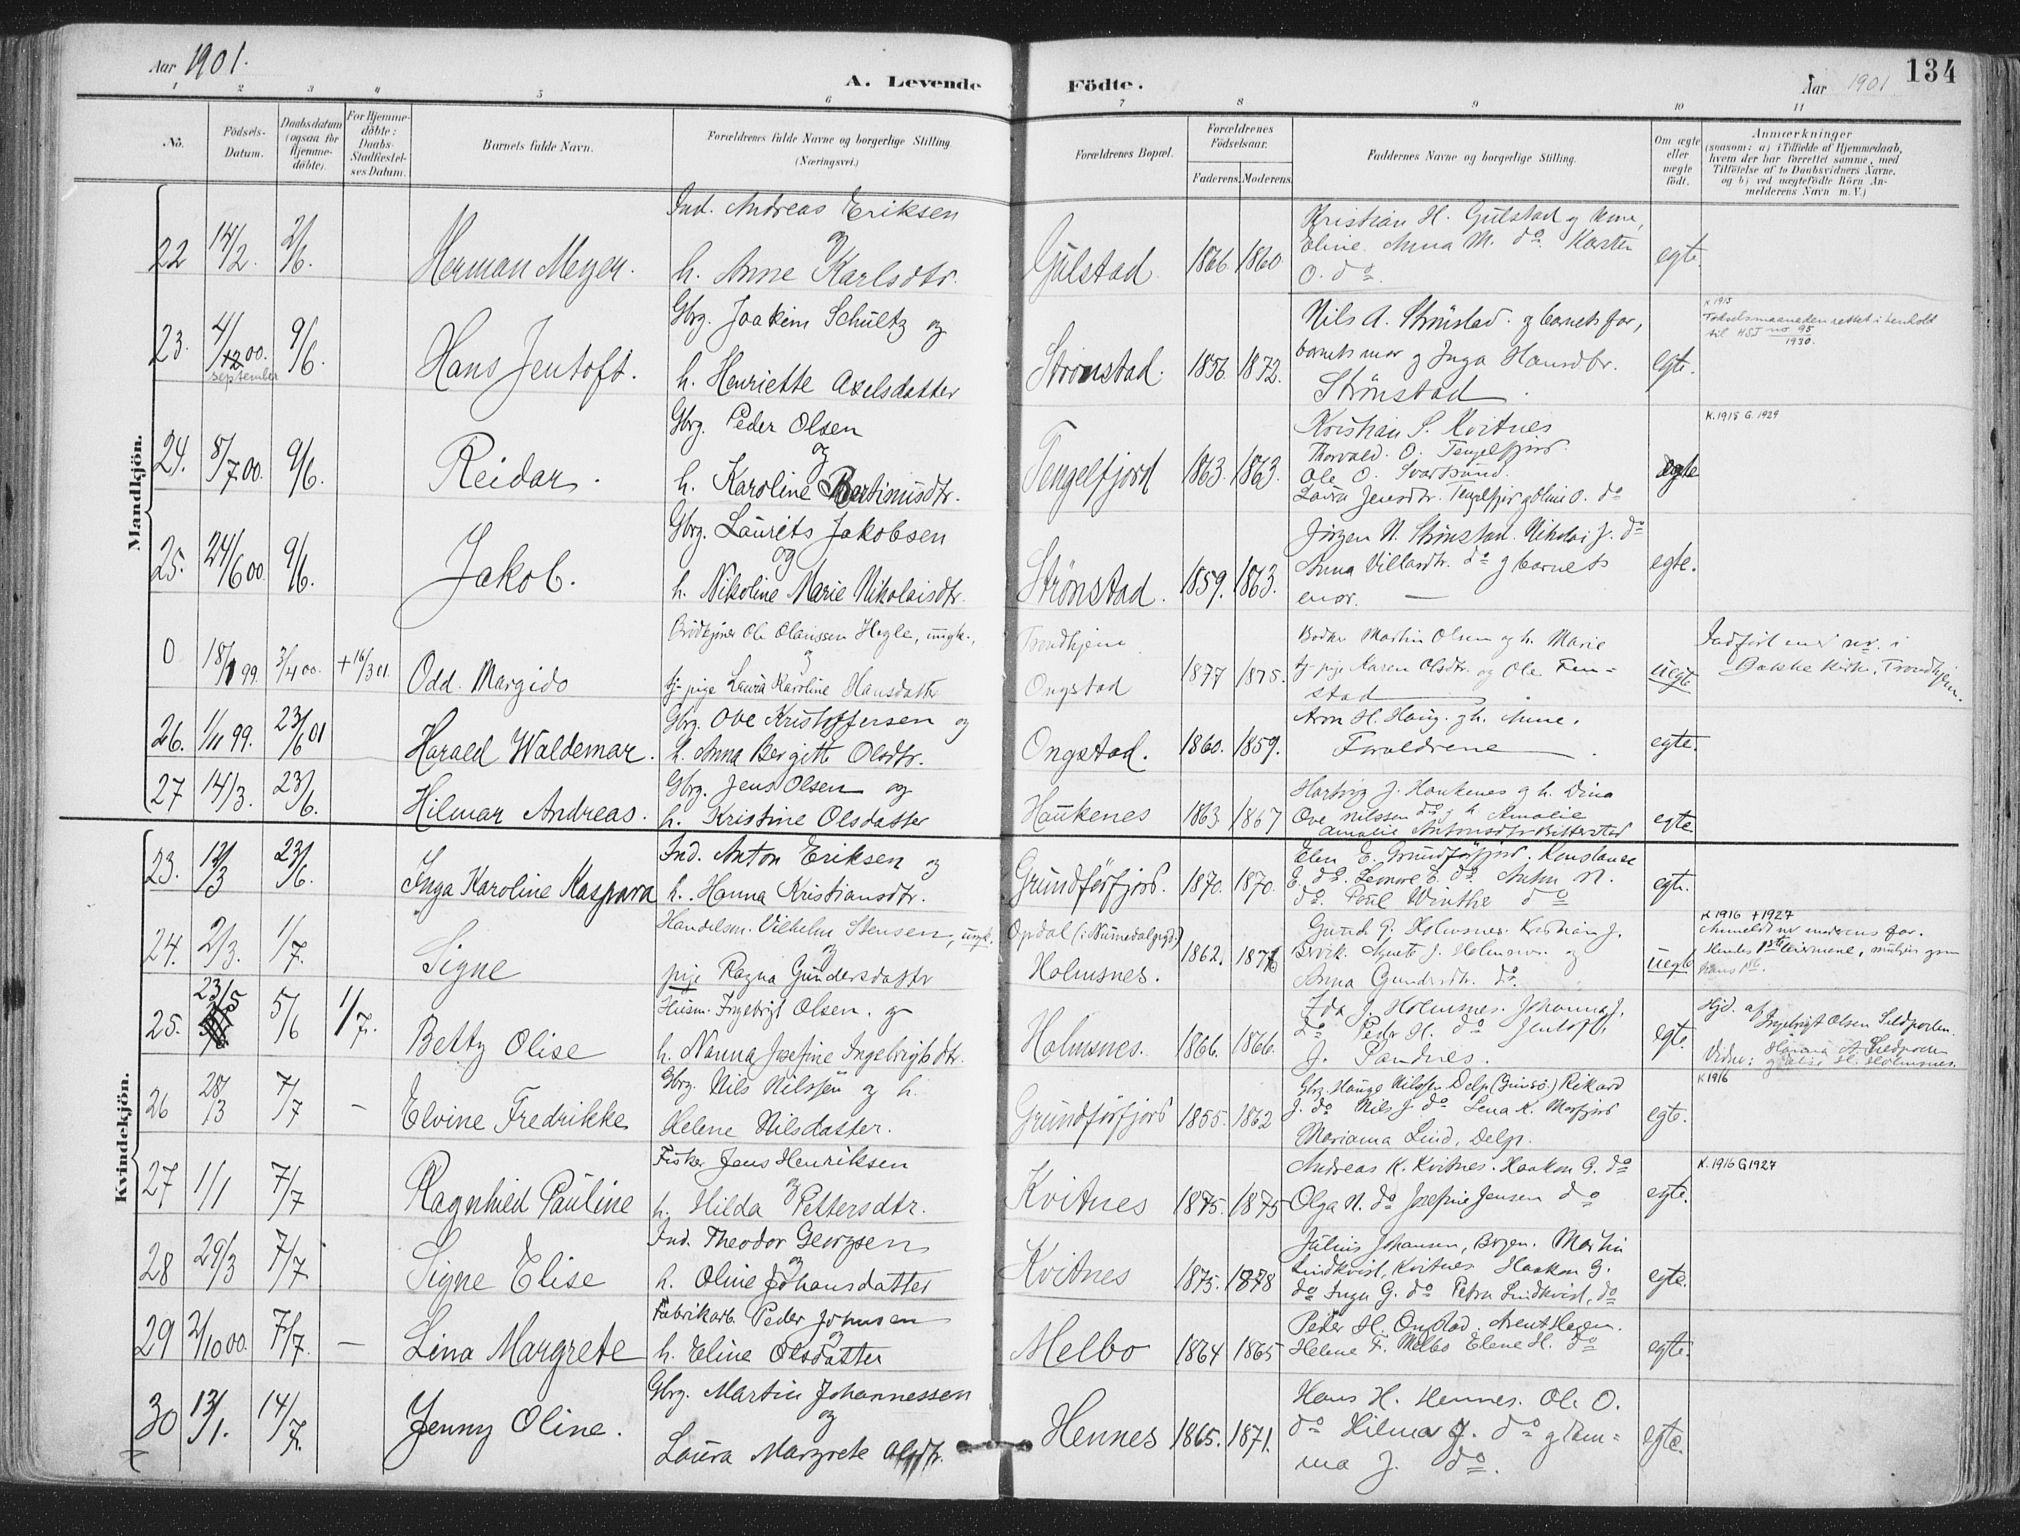 Aar 1901.
A. Levende Födte.
Aar 1901
134
1 2 3 4 5 6 7 8 9 10 11
No.
Födsels-
Datum.
Daabsdatum
(ogsaa for
Hjemme-
döbte).
For Hjemme-
döbte:
Daabs-
Stadfæstel-
ses Datum.
Barnets fulde Navn.
Forældrenes fulde Navne og borgerlige Stilling
(Næringsvei.)
Forældrenes Bopæl.
Forældrenes
Födselsaar.
Faderens. Moderens.
Faddernes Navne og borgerlige Stilling.
Om ægte
eller
uægte
födt.
Anmærkninger
(saasom: a) i Tilfælde af Hjemmedaab,
hvem der har forrettet samme, med
Tilföielse af to Daabsvidners Navne.
og b) ved uægtefödte Börn An-
melderens Navn m. V.)
Mandkjön.
22 14/2. 2/6. Herman Meyer. Ind. Andreas Eriksen
og
h. Anne Karlsdtr.
Gulstad. 1866 1860
Kristian H. Gulstad og
Eline. Anna M. do. Karsten
O. do
egte.
23. 4/12 00. september 9/6. Hans Jentoft.
Gbrg. Joakim Schultz og
h. Henriette Axelsdatter
Strønstad. 1856. 1872.
Nils A. Strønstad. og barnets far,
barnets mor og Inga Hansdtr.
Strønstad.
egte.
K 1915
Fødselsmaaneden rettet i henhold
til HSJ no 95
1930.
24. 8/7 00. 9/6. Reidar.
Gbrg. Peder Olsen
og
h. Karoline Bertinusdtr.
Tengelfjord 1863. 1863.
Kristian S. Kvitnes
Thorvald. O. Tengelfjord.
Ole O. Svartsund.
Laura Jensdtr. Tengelfjor og Oline O. do
egte
K. 1915 G. 1929
25. 24/6 00 9/6. Jakob.
Gbrg. Laurits Jakobsen
og
h. Nikoline Marie Nikolaisdtr.
Strønstad. 1859. 1863.
Jørgen N. Strønstad. Nikolai J. do
Anna Villasdtr. do og barnets
mor.
egte.
0 18/1 99. 3/4 00. + 16/3 01. Odd. Margido
Ole Olaussen Hegle, ungk.,
og
tj-pige Laura Karoline Hansdatter
Trondhjem
Ongstad
1877 1875.
Martin Olsen og h. Marie
tj-pige Karen Olsdtr. og Ole Fen-
stad
uegte
Indført under nr. i
Bakke Kirke, Trondhjem.
26. 1/11 99. 23/6 01 Harald Waldemar.
Gbrg. Ove Kristoffersen og
h. Anna Bergitte Olsdtr.
Ongstad. 1860. 1859.
Aron H. Haug. og h. Anne.
Forældrene
egte.
27 14/3. 23/6. Hilmar Andreas.
Gbrg. Jens Olsen og
h. Kristine Olsdatter
Haukenes 1863 1867
Hartvig J. Haukenes og h. Dina
Ove Nilssen do og h Amalie
Amalie Antonsdtr Bitterstad
egte
Kvindekjön.
23. 12/3 23/6. Inga Karoline Kaspara
Ind. Anton Eriksen og
h. Hanna Kristiansdtr.
Grundførfjord. 1870. 1870.
Elen E. Grundførfjord. Konstance
E. do. Lenore E. do. Anton N.
do. Poul Winther do
egte.
24. 2/3. 1/7. Signe
Handelsm. Vilhelm Stensen, ungk.
og
pige Ragna Gundersdatter
Opdal (i Numedalsegd.)
Holmsnes.
1862. 1876
Gunda G. Holmsnes. Kristian J.
Agnete J. Holmsnes. og
Anna Gundersdtr. do.
uegte
K 1916 + 1927
Anmeldt av moderens far.
25. 23/5 5/6 1/7. Betty Olise
Husm. Ingebrigt Olsen. og
h. Nanna Josefine Ingebrigtsdtr.
Holmsnes. 1866. 1866.
Ida J. Holmsnes. Johanna J.
do Peder H. do Jentoft
J. Sandnes.
egte.
Hjd. af
Ingebrigt Olsen Sildpollen.
Vidne: Hanna A. Sildpollen
26 28/3 7/7 – Elvine Fredrikke
Gbrg. Nils Nilssen og h.
Helene Nilsdatter.
Grundførfjord 1855. 1862
Gbrg. Hauge Nilssen Delp (Gimsø.) Rikard
J. do Nils J. do Lena K. Morfjord
Marianna Lind, Delp.
egte.
K 1916
27 1/1 7/7 Ragnhild Pauline
Fisker Jens Henriksen
og
h. Hilda Pettersdtr.
Kvitnes 1875. 1875
Andreas K. Kvitnes. Haakon G. do
Olga N. do Josefine Jensen do
egte.
K. 1916 G 1927
28 29/3 7/7 Signe Elise
Ind. Theodor Georgsen
og
h. Oline Johansdatter
Kvitnes 1875. 1878
Julius Johansen, Bogen. Martin
Lindkvist, Kvitnes Haakon G.
do Inga G. do Petra Lindkvist, do
egte.
29 2/10 00 7/7. – Lina Margrete
Fabrikarb. Peder Johnsen
og
h. Eline Olsdatter
Melbo 1864 1865
Peder H. Onstad. Arent Hagen.
Helene F. Melbo Elene H. do
egte.
30 13/1. 14/7. Jenny Oline.
Gbrg. Martin Johannessen
og
Laura Margrete Olsdtr.
Hennes 1865. 1871.
Hans H. Hennes. Ole O.
do Hilmar J. do og Em=
ma J. do.
egte.